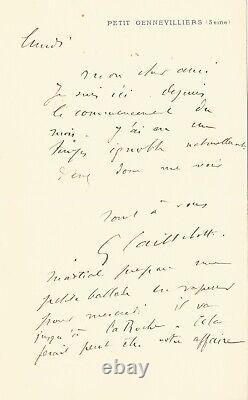 PETIT GENNEVILLIERS (Seine)
lundi
mon cher ami
Je suis ici depuis
le commencement du
mois. J'ai eu un
temps ignoble naturellement
donc me voir
tout à vous
G Caillebotte
martial prépare une
petite ballade en vapeur
pour mercredi il va
jusqu'à la Roche - cela
ferait peut être votre affaire
100% fr.picclick.com